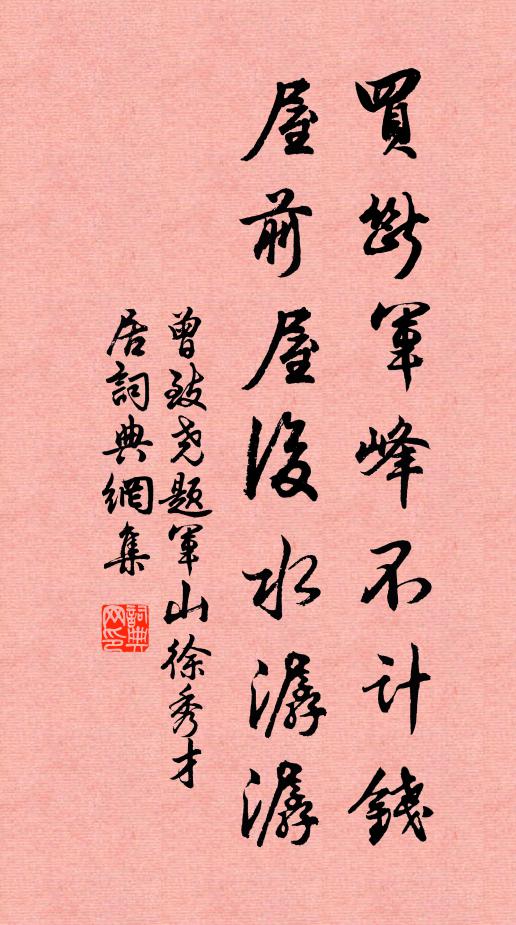 買斷軍峰不計錢
屋前屋後水潺潺
曾致堯題軍山徐秀才
居詞典網集
詞典網印